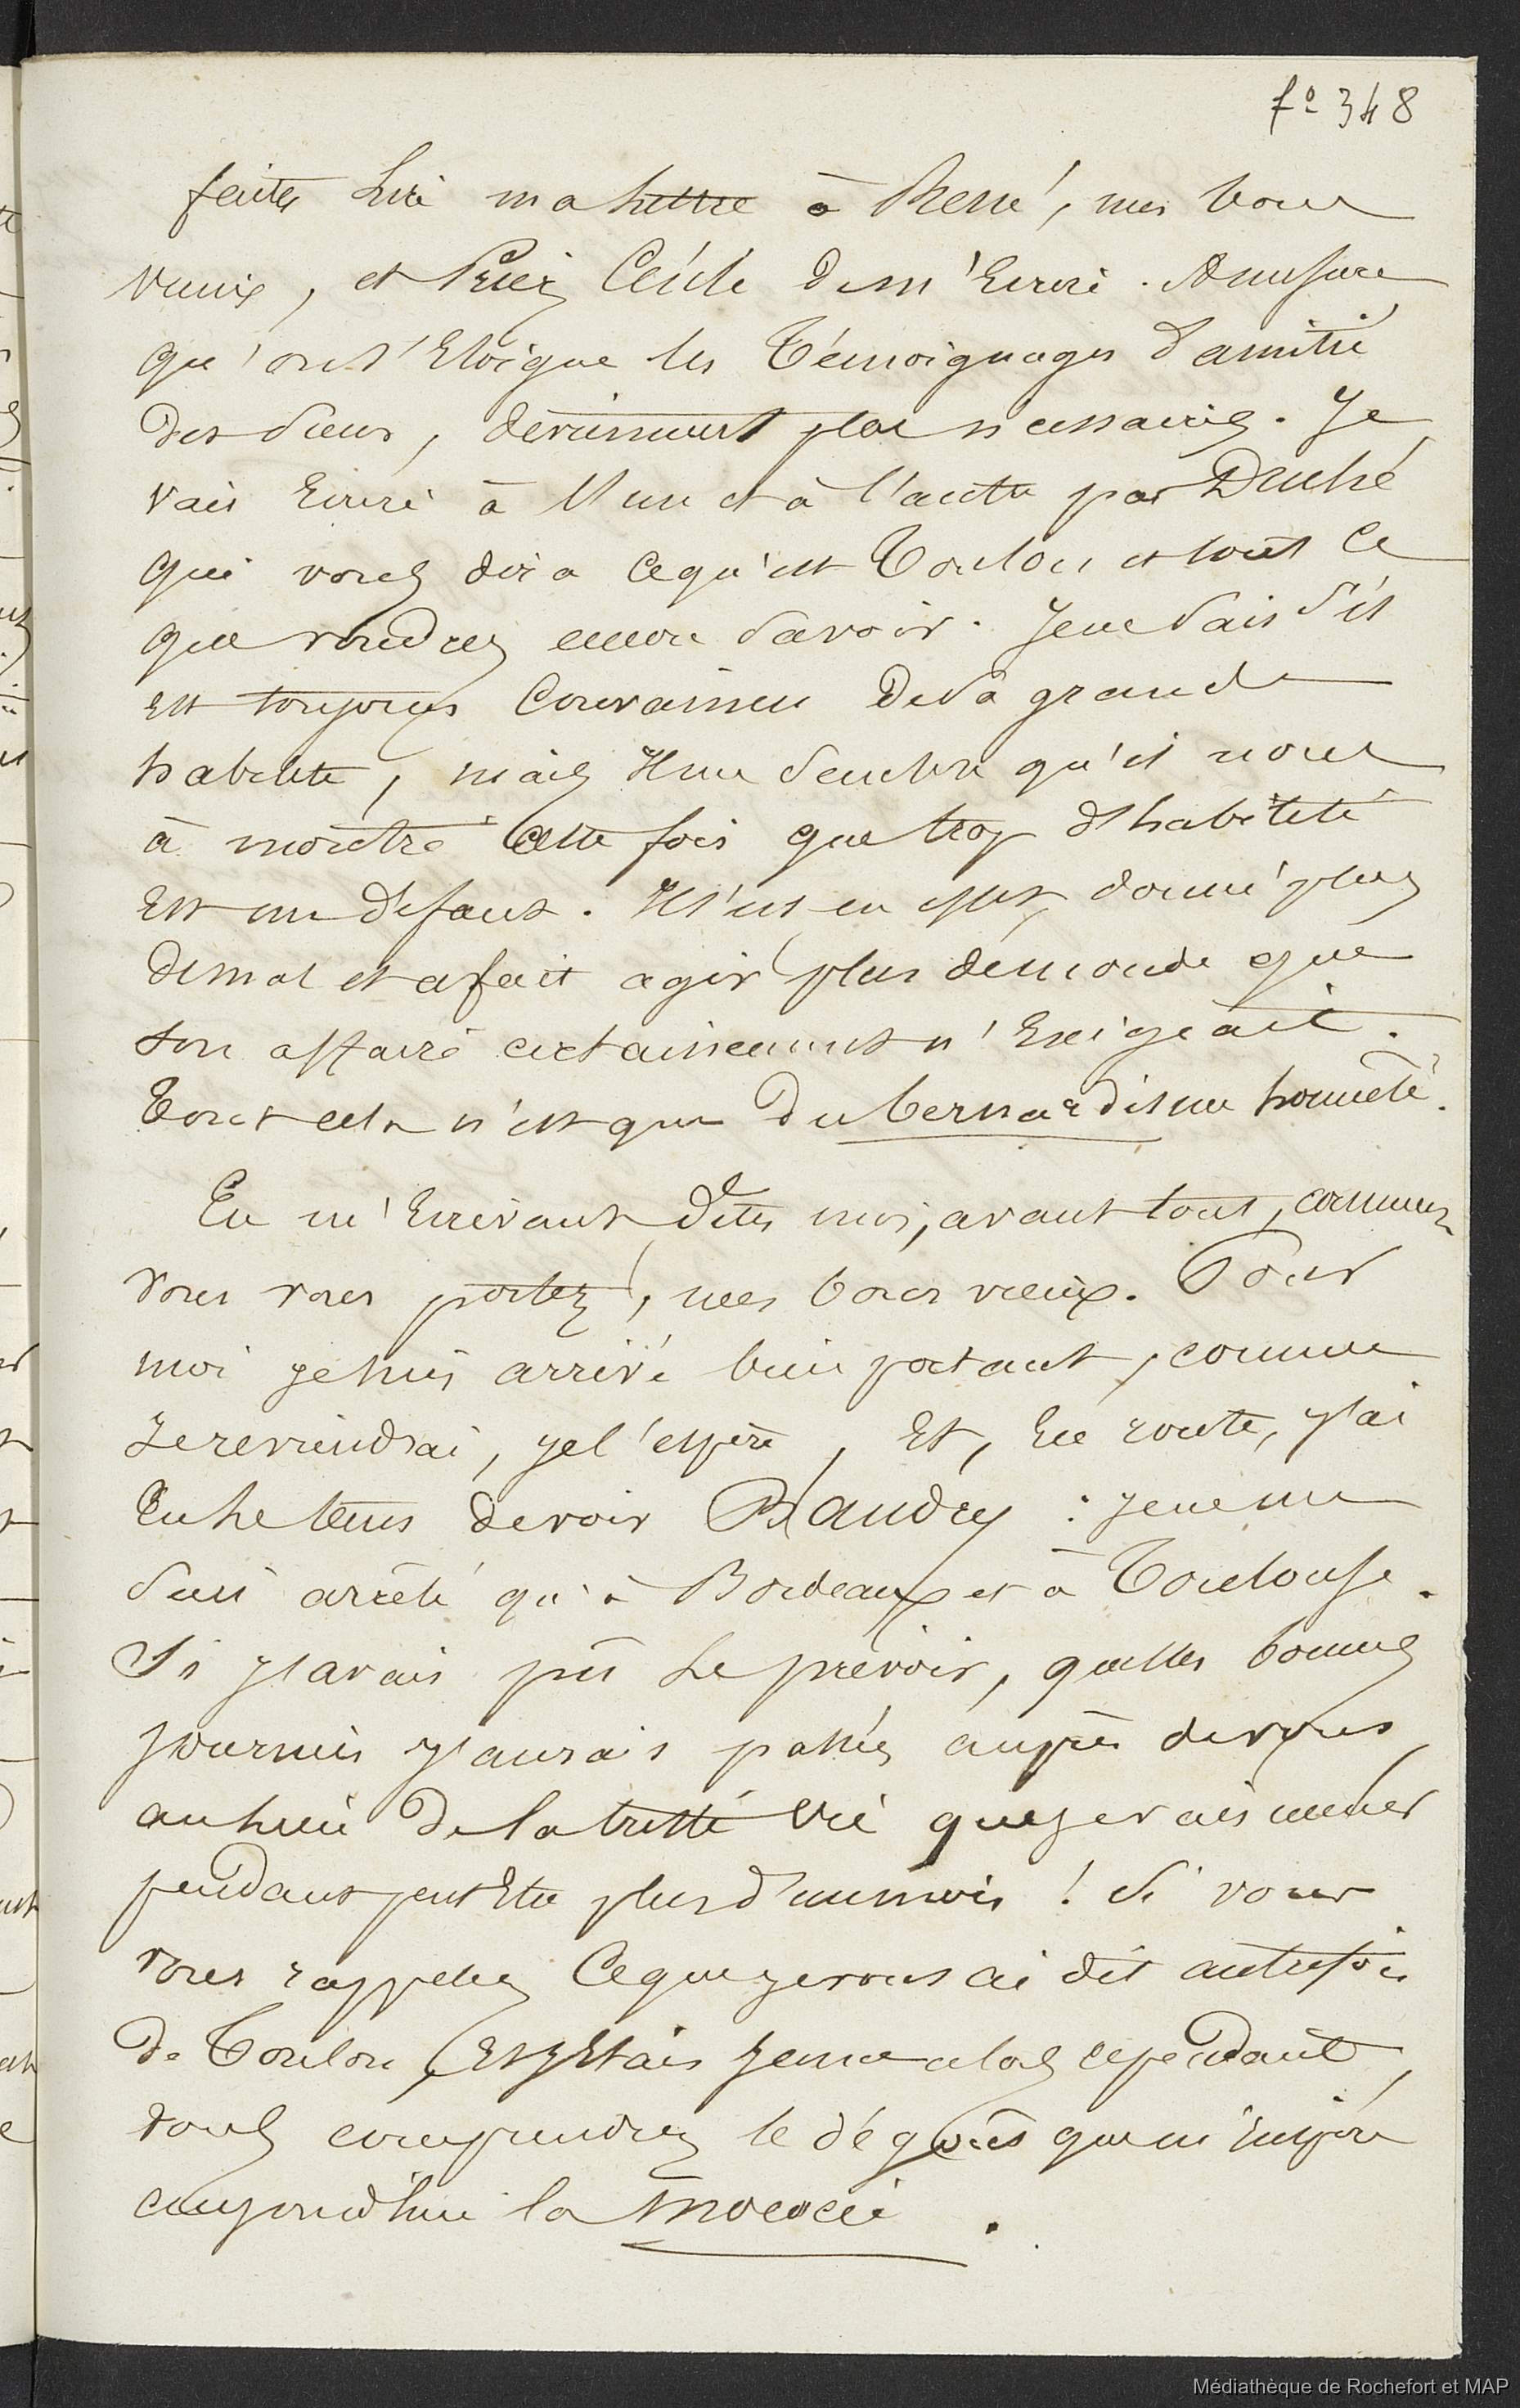 fo 348
faites lire ma lettre à René, mes bons
vieux, et Priez Cécile de m'Ecrire. A mesure
qu'on s'Eloigne les Témoignages d'amitié
des siens, deviennent plus necessaires. Je
vais Ecrire à l'un et à l'autre par
qui vous dira ce qu'est Toulon et tout ce
que voudrez encore savoir. Je ne sais s'il
est toujours Convaincu de sa grande
habileté, mais Il me semble qu'il nous
à montré Cette fois que trop d'habileté
Est un défaut. Il s'est en effet, donné plus
de mal et a fait agir plus de monde que
son affaire certainement n'Exigeait.
Tout cela n'est que du bernardisme honnête.
En m'Ecrivant dites moi, avant tout, comment
vous vous portez, mes bons vieux. Pour
moi je suis arrivé bien portant, comme
Je reviendrai, je l'espère, Et, En route, j'ai
Eu le tems de voir Baudry : je ne me
suis arrêté qu'à Bordeaux et à Toulouse.
Si j'avais pû le prévoir, quelles bonnes
journées j'aurais passées auprès de vous,
au lieu De la triste vie que je vais mener
pendant peut Etre plus d'un mois ! Si vous
vous rappelez Ce que je vous ai dit autrefois
de Toulon, Et j'Etais Jeune alors cependant,
vous comprendrez le dégoût que m'inspire
aujourd'hui la mococie.
Médiathèque de Rochefort et MAP